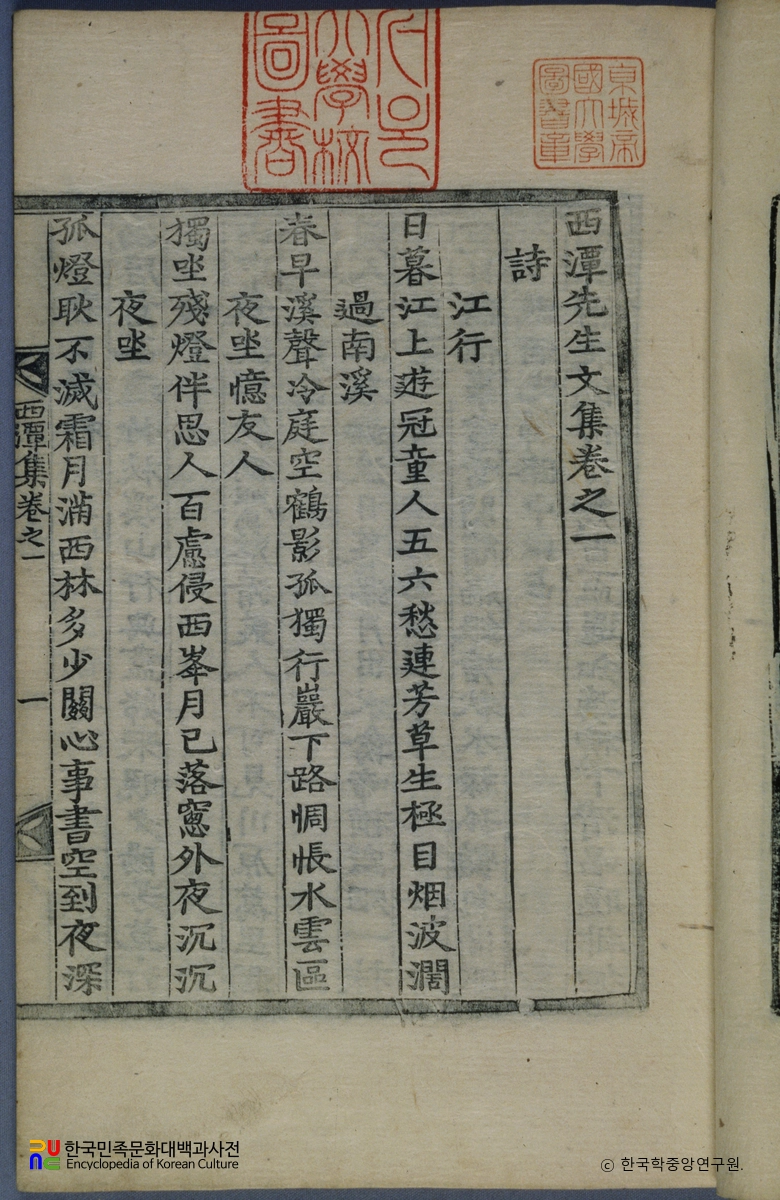 西潭先生文集卷之一
詩
江行
日暮江上遊冠童人五六愁連芳草生極目烟波濶
過南溪
春早溪聲冷庭空鶴影孤獨行巖下路惆悵水雲區
夜坐憶友人
獨坐殘燈伴思人百慮侵西峯月已落窓外夜沉沉
夜坐
孤燈耿不滅霜月滿西林多少關心事書空到夜深
西潭集卷之一
一
京城帝
國大學
圖書章
大學校
圖書
한국민족문화대백과사전
Encyclopedia of Korean Culture
© 한국학중앙연구원.